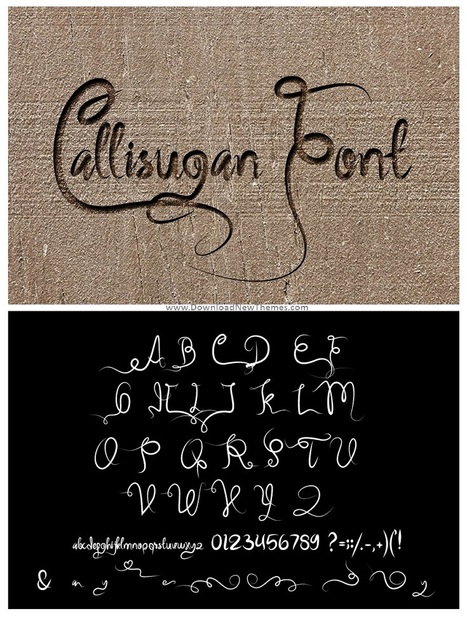 Callisugan Font
www.DownloadNewThemes.com
A B C D E F
G H I J K L M
O P Q R S T U
V W X Y Z
abcdefghijklmnopqrstuvwxyz 0123456789 ?=;:/.-,+)('!
&